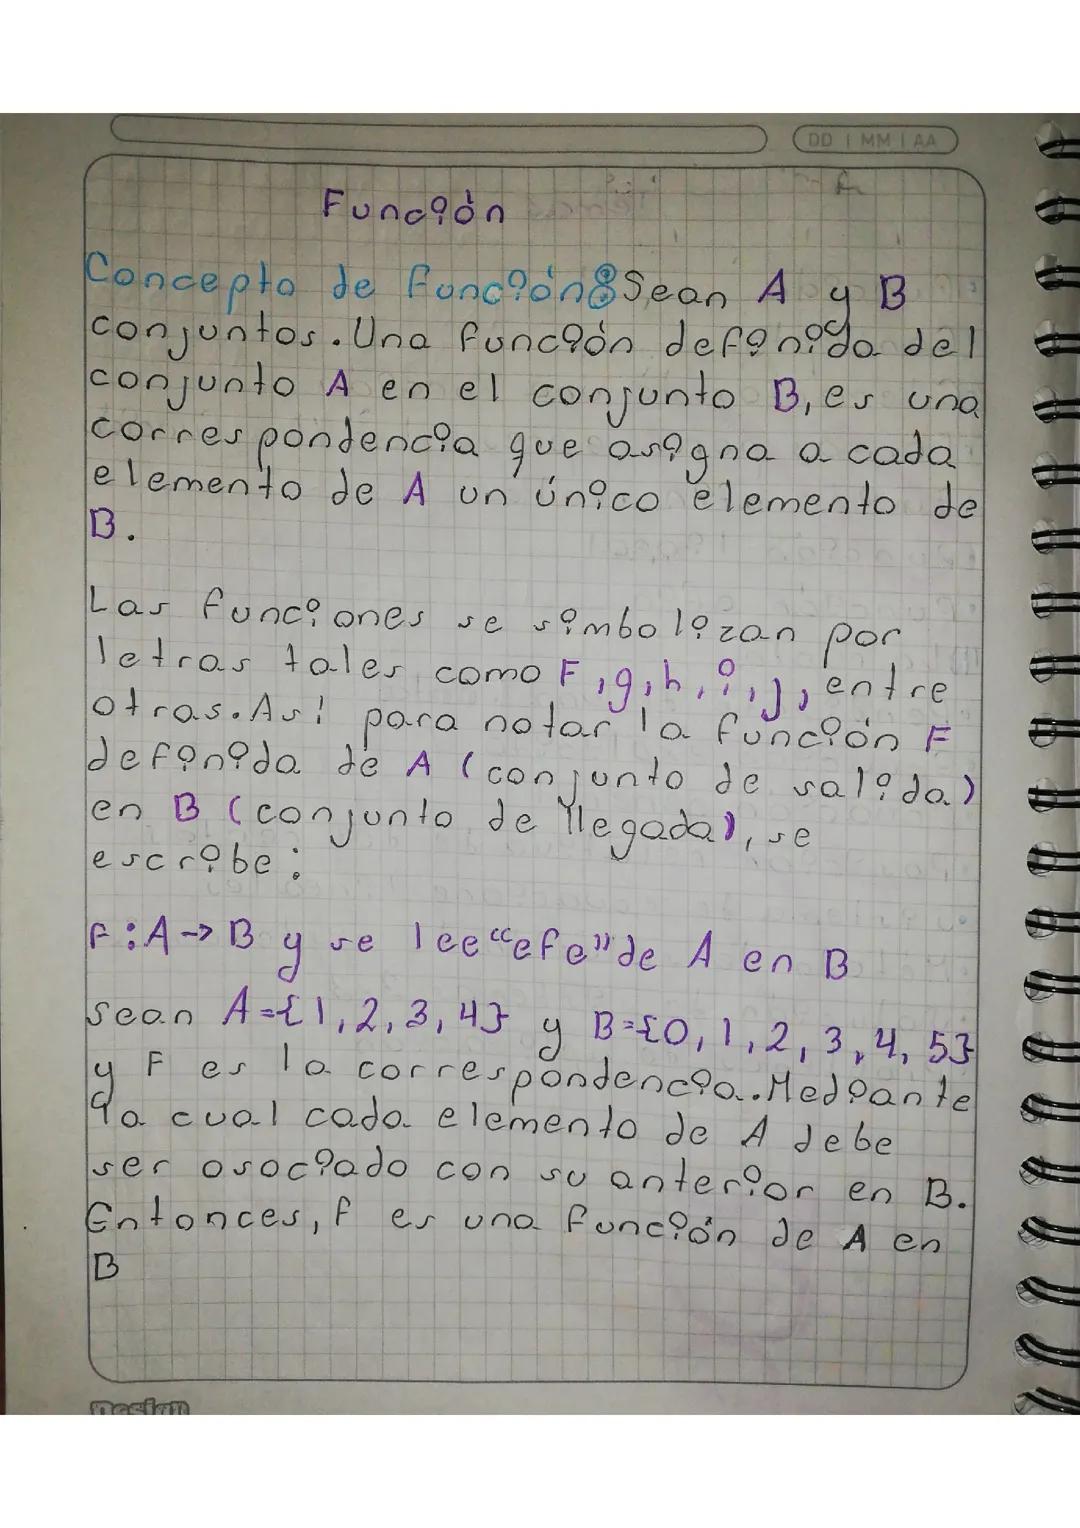 DD | MM | AA
Función
Concepto de función: Sean A y B
conjuntos. Una función definida del
conjunto A en el conjunto B, es una
correspondencia que asigna a cada
elemento de A un único elemento de
B.
Las funciones se simbolizan por
letras tales como F, g, h, i, j, entre
otras. Así para notar la función F
definida de A (conjunto de salida)
en B (conjunto de llegada), se
escribe:
F: A -> B y se lee "efe" de A en B
Sean A={1, 2, 3, 4} y B={0, 1, 2, 3, 4, 5}
y F es la correspondencia. Mediante
la cual cada elemento de A debe
ser asociado con su anterior en B.
Entonces, f es una función de A en
B
Design